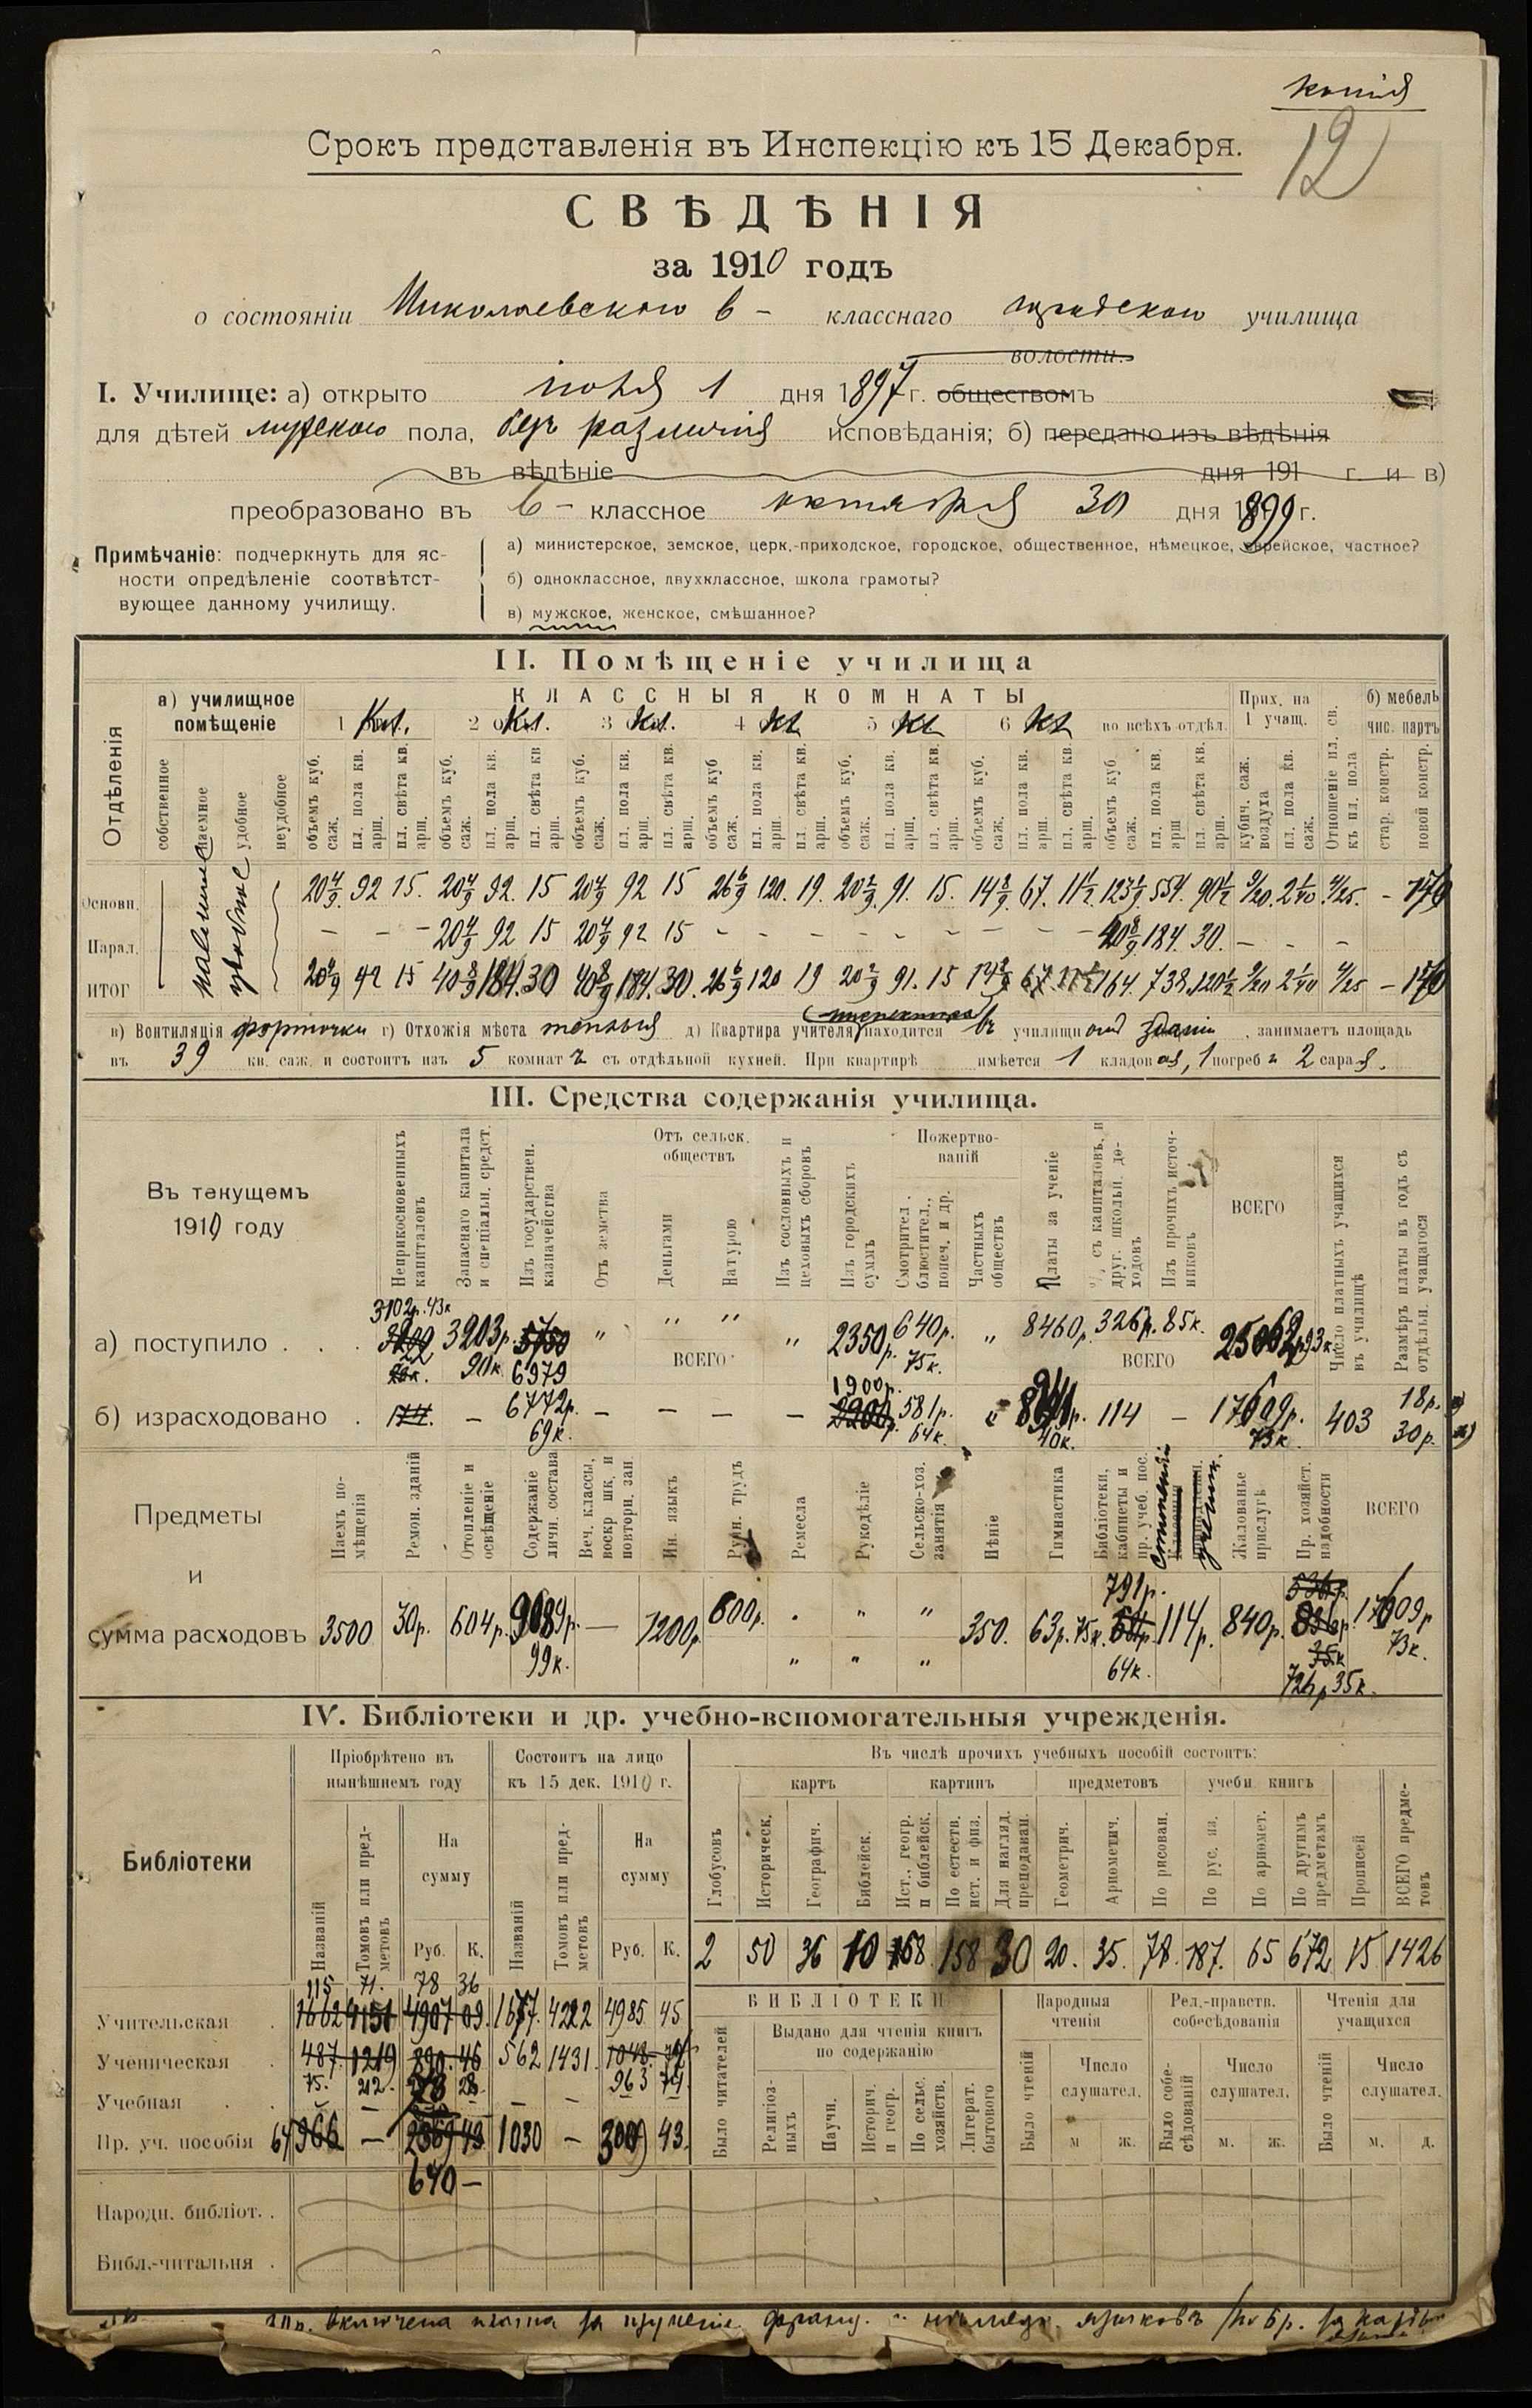 копія
12
Срокъ представленія въ Инспекцію къ 15 Декабря.
СВѢДѢНІЯ
за 1910 годъ
о состояніи Николаевскаго 6 – класснаго городского училища
волости.
I. Училище: а) открыто іюля 1 дня 1897 г. обществомъ
для дѣтей мужского пола, безъ различія исповѣданія; б) передано изъ вѣдѣнія
въ вѣдѣніе дня 191 г. и в)
преобразовано въ 6 – классное октября 30 дня 1899 г.
Примѣчаніе: подчеркнуть для яс-
ности опредѣленіе соотвѣтст-
вующее данному училищу.
а) министерское, земское, церк.-приходское, городское, общественное, нѣмецкое, еврейское, частное?
б) одноклассное, двухклассное, школа грамоты?
в) мужское, женское, смѣшанное?
II. Помѣщеніе училища
Отдѣленія
а) училищное помѣщеніе
КЛАССНЫЯ КОМНАТЫ
Прих. на 1 учащ.
Отношеніе пл. св. къ пл. пола
б) мебель
чис. партъ
1 Кл. 2 Кл. 3 Кл. 4 Кл 5 Кл 6 Кл во всѣхъ отдѣл.
собственное наемное удобное неудобное
объемъ куб. саж. пл. пола кв. арш. пл. свѣта кв. арш.
объемъ куб. саж. пл. пола кв. арш. пл. свѣта кв арш.
объемъ куб. саж. пл. пола кв. арш. пл. свѣта кв. арш.
объемъ куб саж. пл. пола кв. арш. пл. свѣта кв. арш.
объемъ куб. саж. пл. пола кв. арш. пл. свѣта кв. арш.
объемъ куб. саж. пл. пола кв. арш. пл. свѣта кв. арш.
объемъ куб. саж. пл. пола кв. арш пл. свѣта кв. арш.
кубич. саж. воздуха пл. пола кв. саж.
стар. констр. новой констр.
наемное удобное
Основн. 20 4/9. 92 15. 20 4/9 92. 15 20 4/9 92 15 26 6/9 120. 19. 20 2/9. 91. 15. 14 8/9. 67. 11 1/2. 554. 90 1/2 – 170
Парал. – – – 20 4/9 92 15 20 4/9 92 15 – – – – – – – – – 40 8/9 184. 30. – – –
ИТОГ 20 4/9 92 15 40 8/9 184. 30 40 8/9 184. 30. 26 6/9 120 19 20 2/9 91. 15 14 8/9 67. 164. 738. 120 1/2 – 170
в) Вентиляція форточки г) Отхожія мѣста теплыя д) Квартира учителя инспектора находится въ училищномъ зданіи, занимаетъ площадь
въ 39 кв. саж. и состоитъ изъ 5 комнатъ съ отдѣльной кухней. При квартирѣ имѣется 1 кладовая, 1 погребъ 2 сарая.
III. Средства содержанія училища.
Въ текущемъ 1910 году
Неприкосновенныхъ капиталовъ
Запаснаго капитала и спеціальн. средст.
Изъ государствен. казначейства
Отъ земства
Отъ сельск. обществъ
Деньгами
Натурою
Изъ сословныхъ и цеховыхъ сборовъ
Изъ городскихъ суммъ
Пожертвованій
Смотрител. блюстител., попеч. и др.
Частныхъ обществъ
Платы за ученіе
% съ капиталовъ, и друг. школьн. доходовъ
Изъ прочихъ источниковъ
ВСЕГО
Число платныхъ учащихся въ училищѣ
Размѣръ платы въ годъ съ отдѣльн. учащагося
3102р. 43к
а) поступило . . . 3203р. 90к 5750 6979 " " " " 2350р. 640р. 75к. " 8460р. 326р. 85к. 25062р 93к
ВСЕГО ВСЕГО
1900р.
б) израсходовано . 174. – 6772р. 69к. – – – – 2900р. 581р. 64к. " 40к. 114 – 17609р. 73к. 403 18р. 30р.
Предметы и сумма расходовъ
Наемъ помѣщенія
Ремон. зданій
Отопленіе и освѣщеніе
Содержаніе личн. состава
Веч. классы, воскр шк. и повторн. зан.
Ин. языкъ
Ручн. трудъ
Ремесла
Рукодѣліе
Сельско-хоз. занятія
Пѣніе
Гимнастика
Библіотеки, кабинеты и пр. учеб. пос.
Жалованье прислугѣ
Пр. хозяйст. надобности
ВСЕГО
3500 30р. 604р. 9089р. 99к. – 1200р. 600р. . " " 350. 63р. 75к. 791р. 64к. 114р. 840р. 726р 35к. 17609р 73к.
IV. Библіотеки и др. учебно-вспомогательныя учрежденія.
Библіотеки
Пріобрѣтено въ нынѣшнемъ году
Состоитъ на лицо къ 15 дек. 1910 г.
Въ числѣ прочихъ учебныхъ пособій состоитъ:
картъ картинъ предметовъ учебн книгъ
Названій Томовъ или предметовъ На сумму Руб. К.
Названій Томовъ или предметовъ На сумму Руб. К.
Глобусовъ Историческ. Географич. Библейск. Ист., геогр. и библейск. По естеств. ист. и физ. Для нагляд. преподаван. Геометрич. Ариѳметич. По рисован. По рус. яз. По ариѳмет. По другимъ предметамъ Прописей ВСЕГО предметовъ
2 50 36 10 168 158 30 20. 35. 78. 187. 65 672 15 1426
115 71. 78 36
Учительская 1662 4151 4907 09. 1677. 4222 4985 45
Ученическая . 487. 1219 890. 46 562 1431. 1048. 74
75. 212. 78 28. 963 74
Учебная . . – – – –
Пр. уч. пособія 64 966 – 2369 43 1030 – 3009 43.
640 –
Народн. библіот. .
Библ.-читальня .
БИБЛІОТЕКИ
Было читателей
Выдано для чтенія книгъ по содержанію
Религіозныхъ Научн. Историч. и геогр. По сельс. хозяйств. Литерат. бытового
Народныя чтенія
Было чтеній Число слушател. м ж.
Рел.-нравств. собесѣдованія
Было собесѣдованій Число слушател. м. ж.
Чтенія для учащихся
Было чтеній Число слушател. м. д.
включена плата за изученіе франц. и нѣмецк. языковъ /по 6р. за кажд.